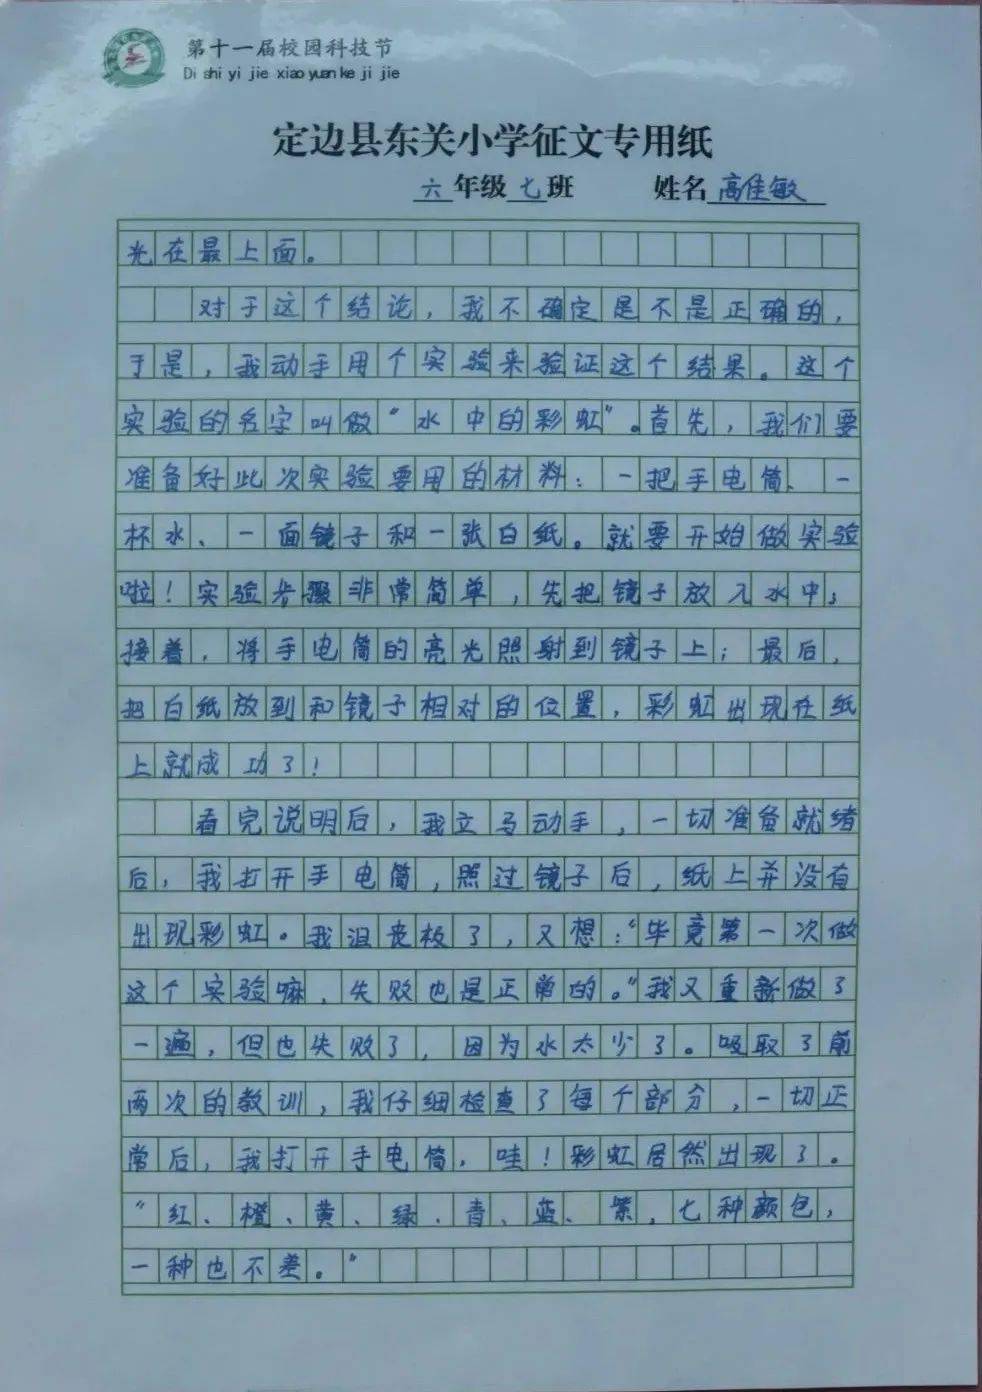 第十一届校园科技节
Di shi yi jie xiao yuan ke ji jie
定边县东关小学征文专用纸
六年级七班 姓名高佳敏
光在最上面。
对于这个结论，我不确定是不是正确的，
于是，我动手用个实验来验证这个结果。这个
实验的名字叫做“水中的彩虹”。首先，我们要
准备好此次实验要用的材料：一把手电筒、一
杯水、一面镜子和一张白纸。就要开始做实验
啦！实验步骤非常简单，先把镜子放入水中；
接着，将手电筒的亮光照射到镜子上；最后，
把白纸放到和镜子相对的位置，彩虹出现在纸
上就成功了！
看完说明后，我立马动手，一切准备就绪
后，我打开手电筒，照过镜子后，纸上并没有
出现彩虹。我沮丧极了，又想：“毕竟第一次做
这个实验嘛，失败也是正常的。”我又重新做了
一遍，但也失败了，因为水太少了。吸取了前
两次的教训，我仔细检查了每个部分，一切正
常后，我打开手电筒，哇！彩虹居然出现了。
“红、橙、黄、绿、青、蓝、紫，七种颜色，
一种也不差。”